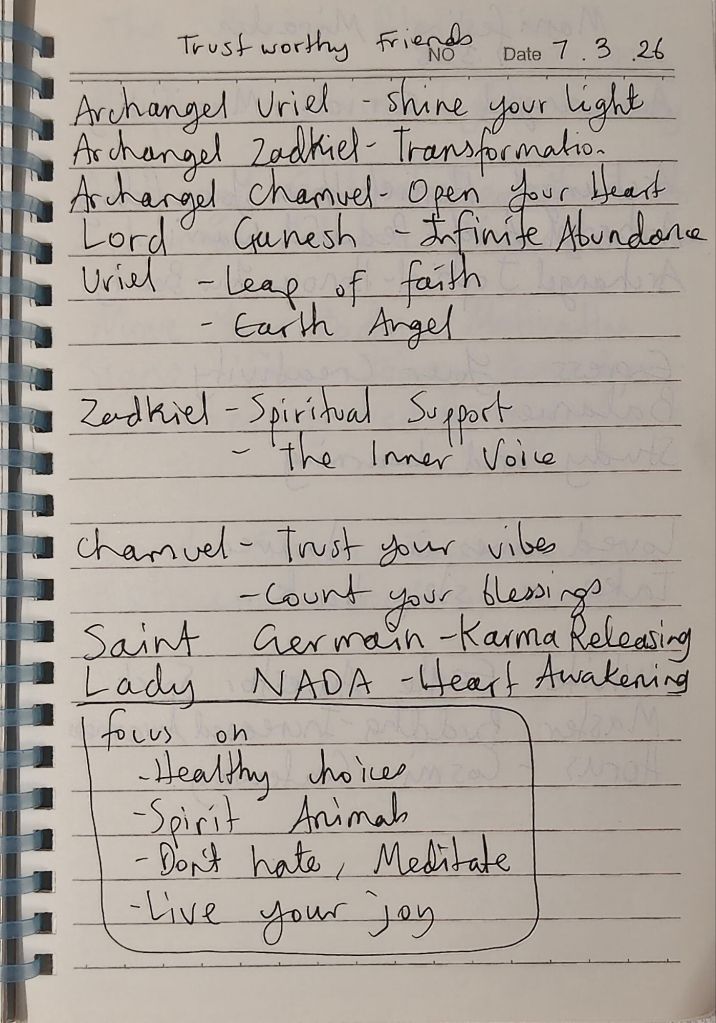 Trustworthy Friends
NO Date 7.3.26
Archangel Uriel - shine your light
Archangel Zadkiel - Transformation
Archangel Chamuel - Open Your Heart
Lord Gunesh - Infinite Abundance
Uriel - Leap of faith
- Earth Angel
Zadkiel - Spiritual Support
- the Inner Voice
Chamuel - Trust your vibes
- Count your blessings
Saint Germain - Karma Releasing
Lady NADA - Heart Awakening
focus on
- Healthy choices
- Spirit Animals
- Don't hate, Meditate
- Live your joy